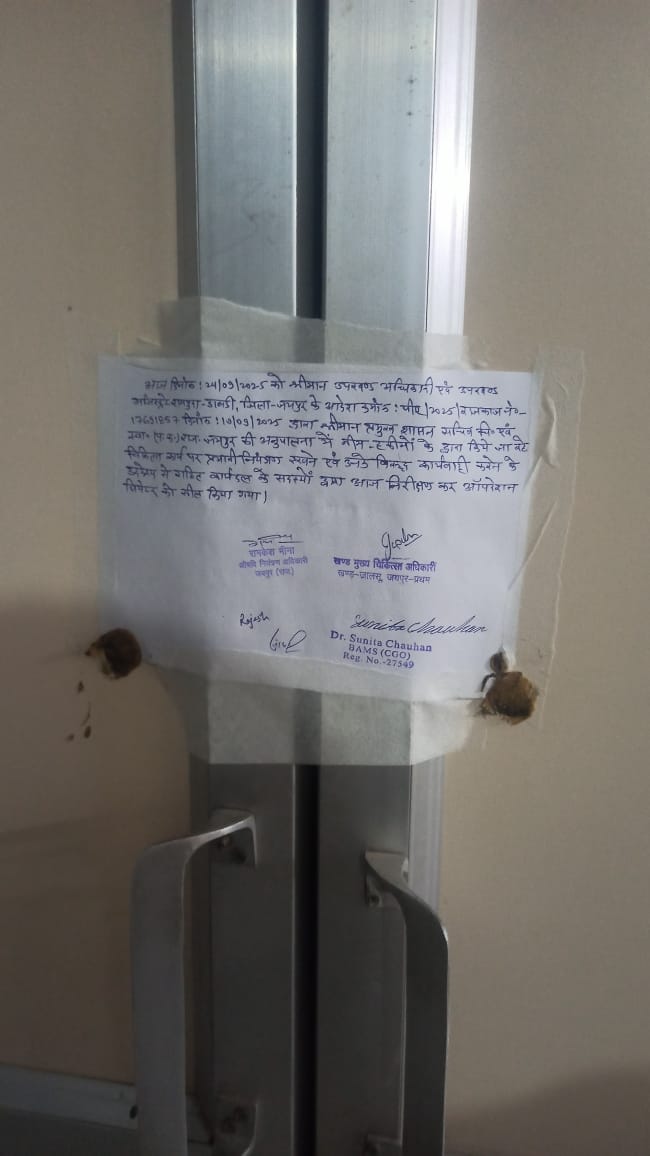 आज दिनांक : 24/09/2025 को श्रीमान उपखण्ड अधिकारी एवं उपखण्ड
मजिस्ट्रेट रामपुरा-डाबडी, जिला-जयपुर के आदेश क्रमांक : पीए/2025/राजकाज नं०-
17691857 दिनांक : 10/09/2025 द्वारा श्रीमान संयुक्त शासन सचिव चि० एवं
स्वा० राज. जयपुर की अनुपालना में नीम-हकीमों के द्वारा किये जा रहे
चिकित्सा कार्य पर प्रभावी नियंत्रण रखने एवं उनके विरूद्ध कार्यवाही करने के
उद्देश्य से गठित कार्यदल के सदस्यों द्वारा आज निरीक्षण कर ऑपरेशन
थियेटर को सील किया गया।
रामकेश मीना
औषधि नियंत्रण अधिकारी
जयपुर (राज.)
खण्ड मुख्य चिकित्सा अधिकारी
खण्ड-जालसू जयपुर-प्रथम
Rajesh
Sunita Chauhan
Dr. Sunita Chauhan
BAMS (CGO)
Reg. No.-27549